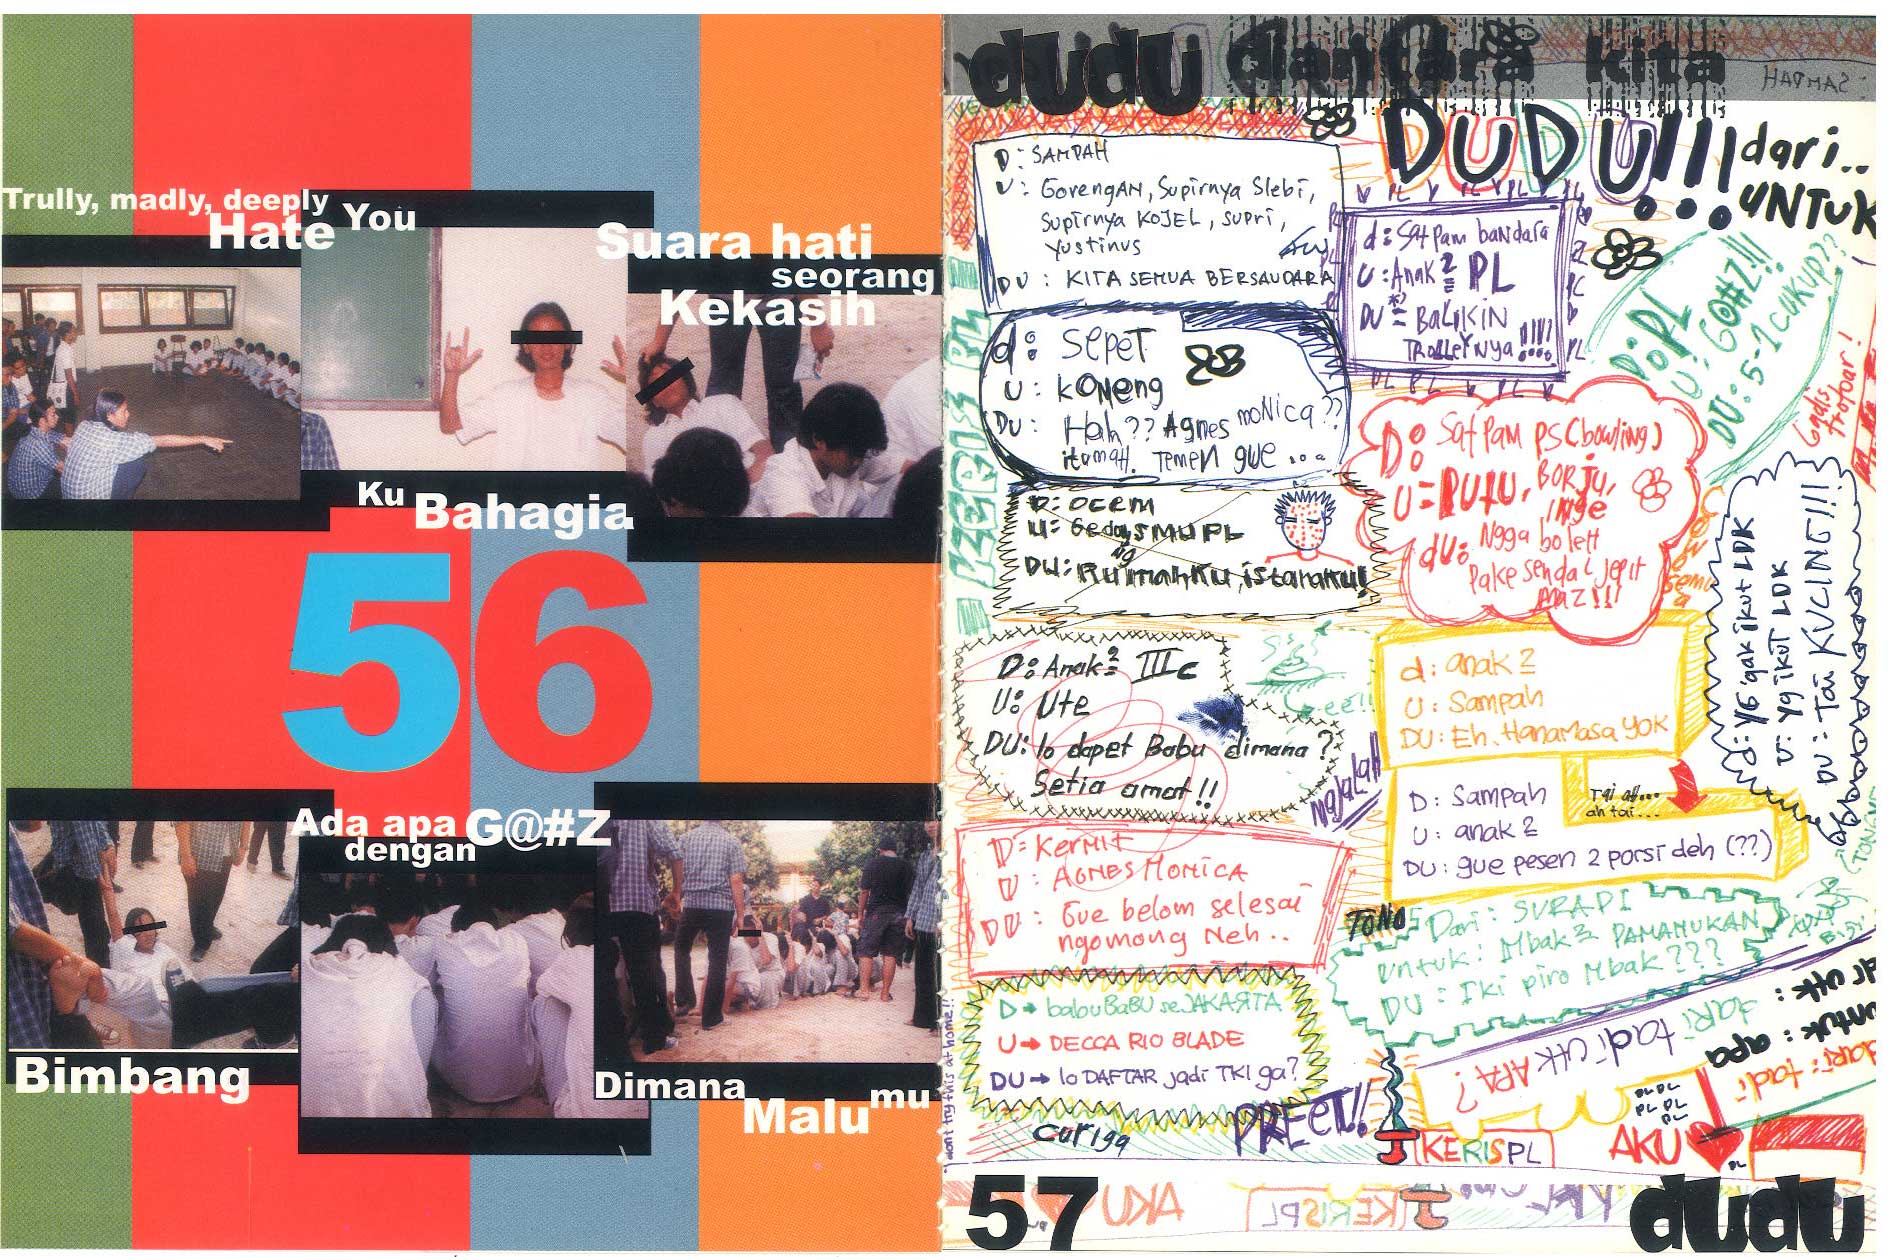 Trully, madly, deeply
Hate You
Suara hati
seorang
Kekasih
Ku Bahagia
56
Ada apa
dengan G@#Z
Bimbang
Dimana
Malu mu
dudu diantara kita
SAMPAH
DUDU!!! dari..
UNTUK
D: SAMPAH
U: GorengAN, Supirnya Slebi,
Supirnya KOJEL, supri,
Yustinus
DU: KITA SEMUA BERSAUDARA
d: Satpam bandara
U: Anak2 PL
DU: BALIKIN
TROLLEYNYA!!!!
D: PL
U: G@#Z!!!
DU: 5-1 CUKUP??
d: SEPET
U: KONENG
DU: Hah?? Agnes MONICA??
itumah. TEMEN gue ...
Gadis
trotoar!
D: Satpam PS (bowling)
U: PUTU, BORJU,
INGE
dU: Ngga boleH
pake sendal jepit
MAZ!!!
D: OCEM
U: Gedong SMU PL
DU: RUMAHKU, iSTANAKU!
d: YG gak ikut LDK
U: Yg ikut LDK
DU: Tai KUCING!!!!
D: Anak2 IIIc
U: Ute
DU: lo dapet Babu dimana?
Setia amat!!
d: anak2
U: Sampah
DU: Eh. Hanamasa YOK
NGALAH
D: Sampah
U: anak2
DU: gue pesen 2 porsi deh (??)
Tai ah...
ah tai...
D: KERMIT
U: AGNES MONICA
DU: Gue belom selesai
ngomong Neh..
TONO
Dari: SURADI
untuk: Mbak2 PAMANUKAN
DU: Iki piro Mbak???
D→ babuBaBU seJAKARTA
U→ DECCA RIO BLADE
DU→ lo DAFTAR jadi TKI ga?
PREET!!
curiga
dont try this at home!!
dari tadi utk APA?
untuk: apa
dari: tadi
KERISPL
AKU
PL
57
AKU
KERISPL
dudu